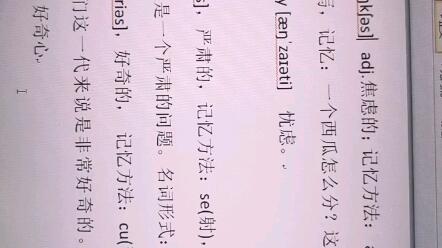 ŋkləs] adj.焦虑的；记忆方法：
写，记忆：一个西瓜怎么分？这
y [æŋˈzaɪəti] 忧虑。
s]，严肃的，记忆方法：se(射)，
是一个严肃的问题。名词形式：
riəs]，好奇的， 记忆方法：cu(
们这一代来说是非常好奇的。
好奇心